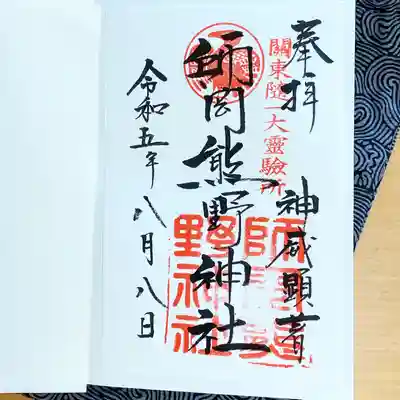 奉拝
神威顕著
關東随一大靈驗所
師岡熊野神社
師岡熊
野神社
令和五年八月八日